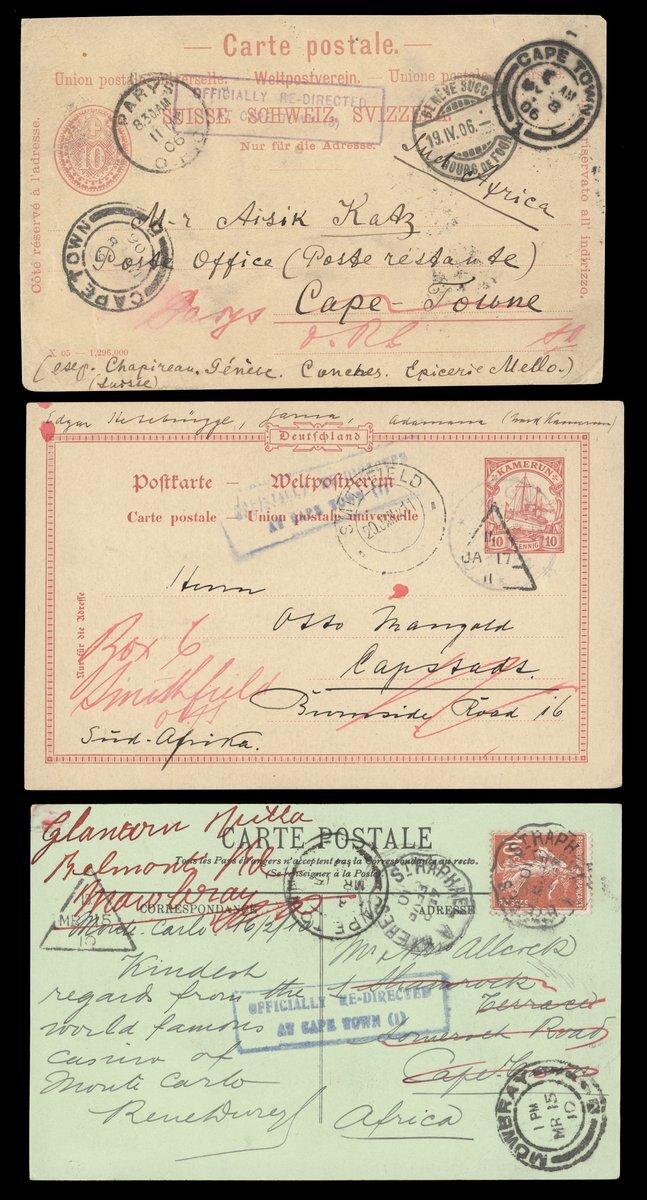 — Carte postale. —
Union postale universelle. — Weltpostverein. — Unione postale universale.
SUISSE. SCHWEIZ. SVIZZERA.
Nur für die Adresse.
Côté réservé à l'adresse.
riservato all'indirizzo.
10
PARYS
8.30AM
11
06
OFFICIALLY RE-DIRECTED
AT CAPE TOWN
GENÈVE SUCC.
19.IV.06.—
BOURG DE FOUR
CAPE TOWN
AM
8
06
CAPE TOWN
Sud Africa
M-r Aisik Katz
Poste Office (Poste restante)
Cape-Towne
Parys
O.R.C.
X 05 — 1,296,000
(esep. Chapireau. Génève. Conches. Epicerie Mello.)
(Suisse)
Edgar
Deutschland
Postkarte — Weltpostverein
Carte postale — Union postale universelle
Nur für die Adresse
KAMERUN
10 PFENNIG 10
OFFICIALLY RE-DIRECTED
AT CAPE TOWN (1)
SMITHFIELD
20 JAN
JA 17
11
Herrn
Otto Mangold
Capstadt.
Burnside Road 16
Süd-Afrika.
Box 6
Smithfield
CARTE POSTALE
Tous les Pays étrangers n'acceptent pas la Correspondance au recto.
(Se renseigner à la Poste)
CORRESPONDANCE
ADRESSE
Belmont Rd
Mowbray
MR 15
10
CAPE TOWN
ST RAPHAEL
ST RAPHAEL
POSTES
Monte-Carlo 16/2/10
Kindest
regards from the
world famous
casino of
Monte Carlo
Mr & Mrs Allcock
1 Shamrock
Terrace
Somerset Road
Cape Town
Africa
OFFICIALLY RE-DIRECTED
AT CAPE TOWN (1)
MOWBRAY
1 PM
MR 15
10